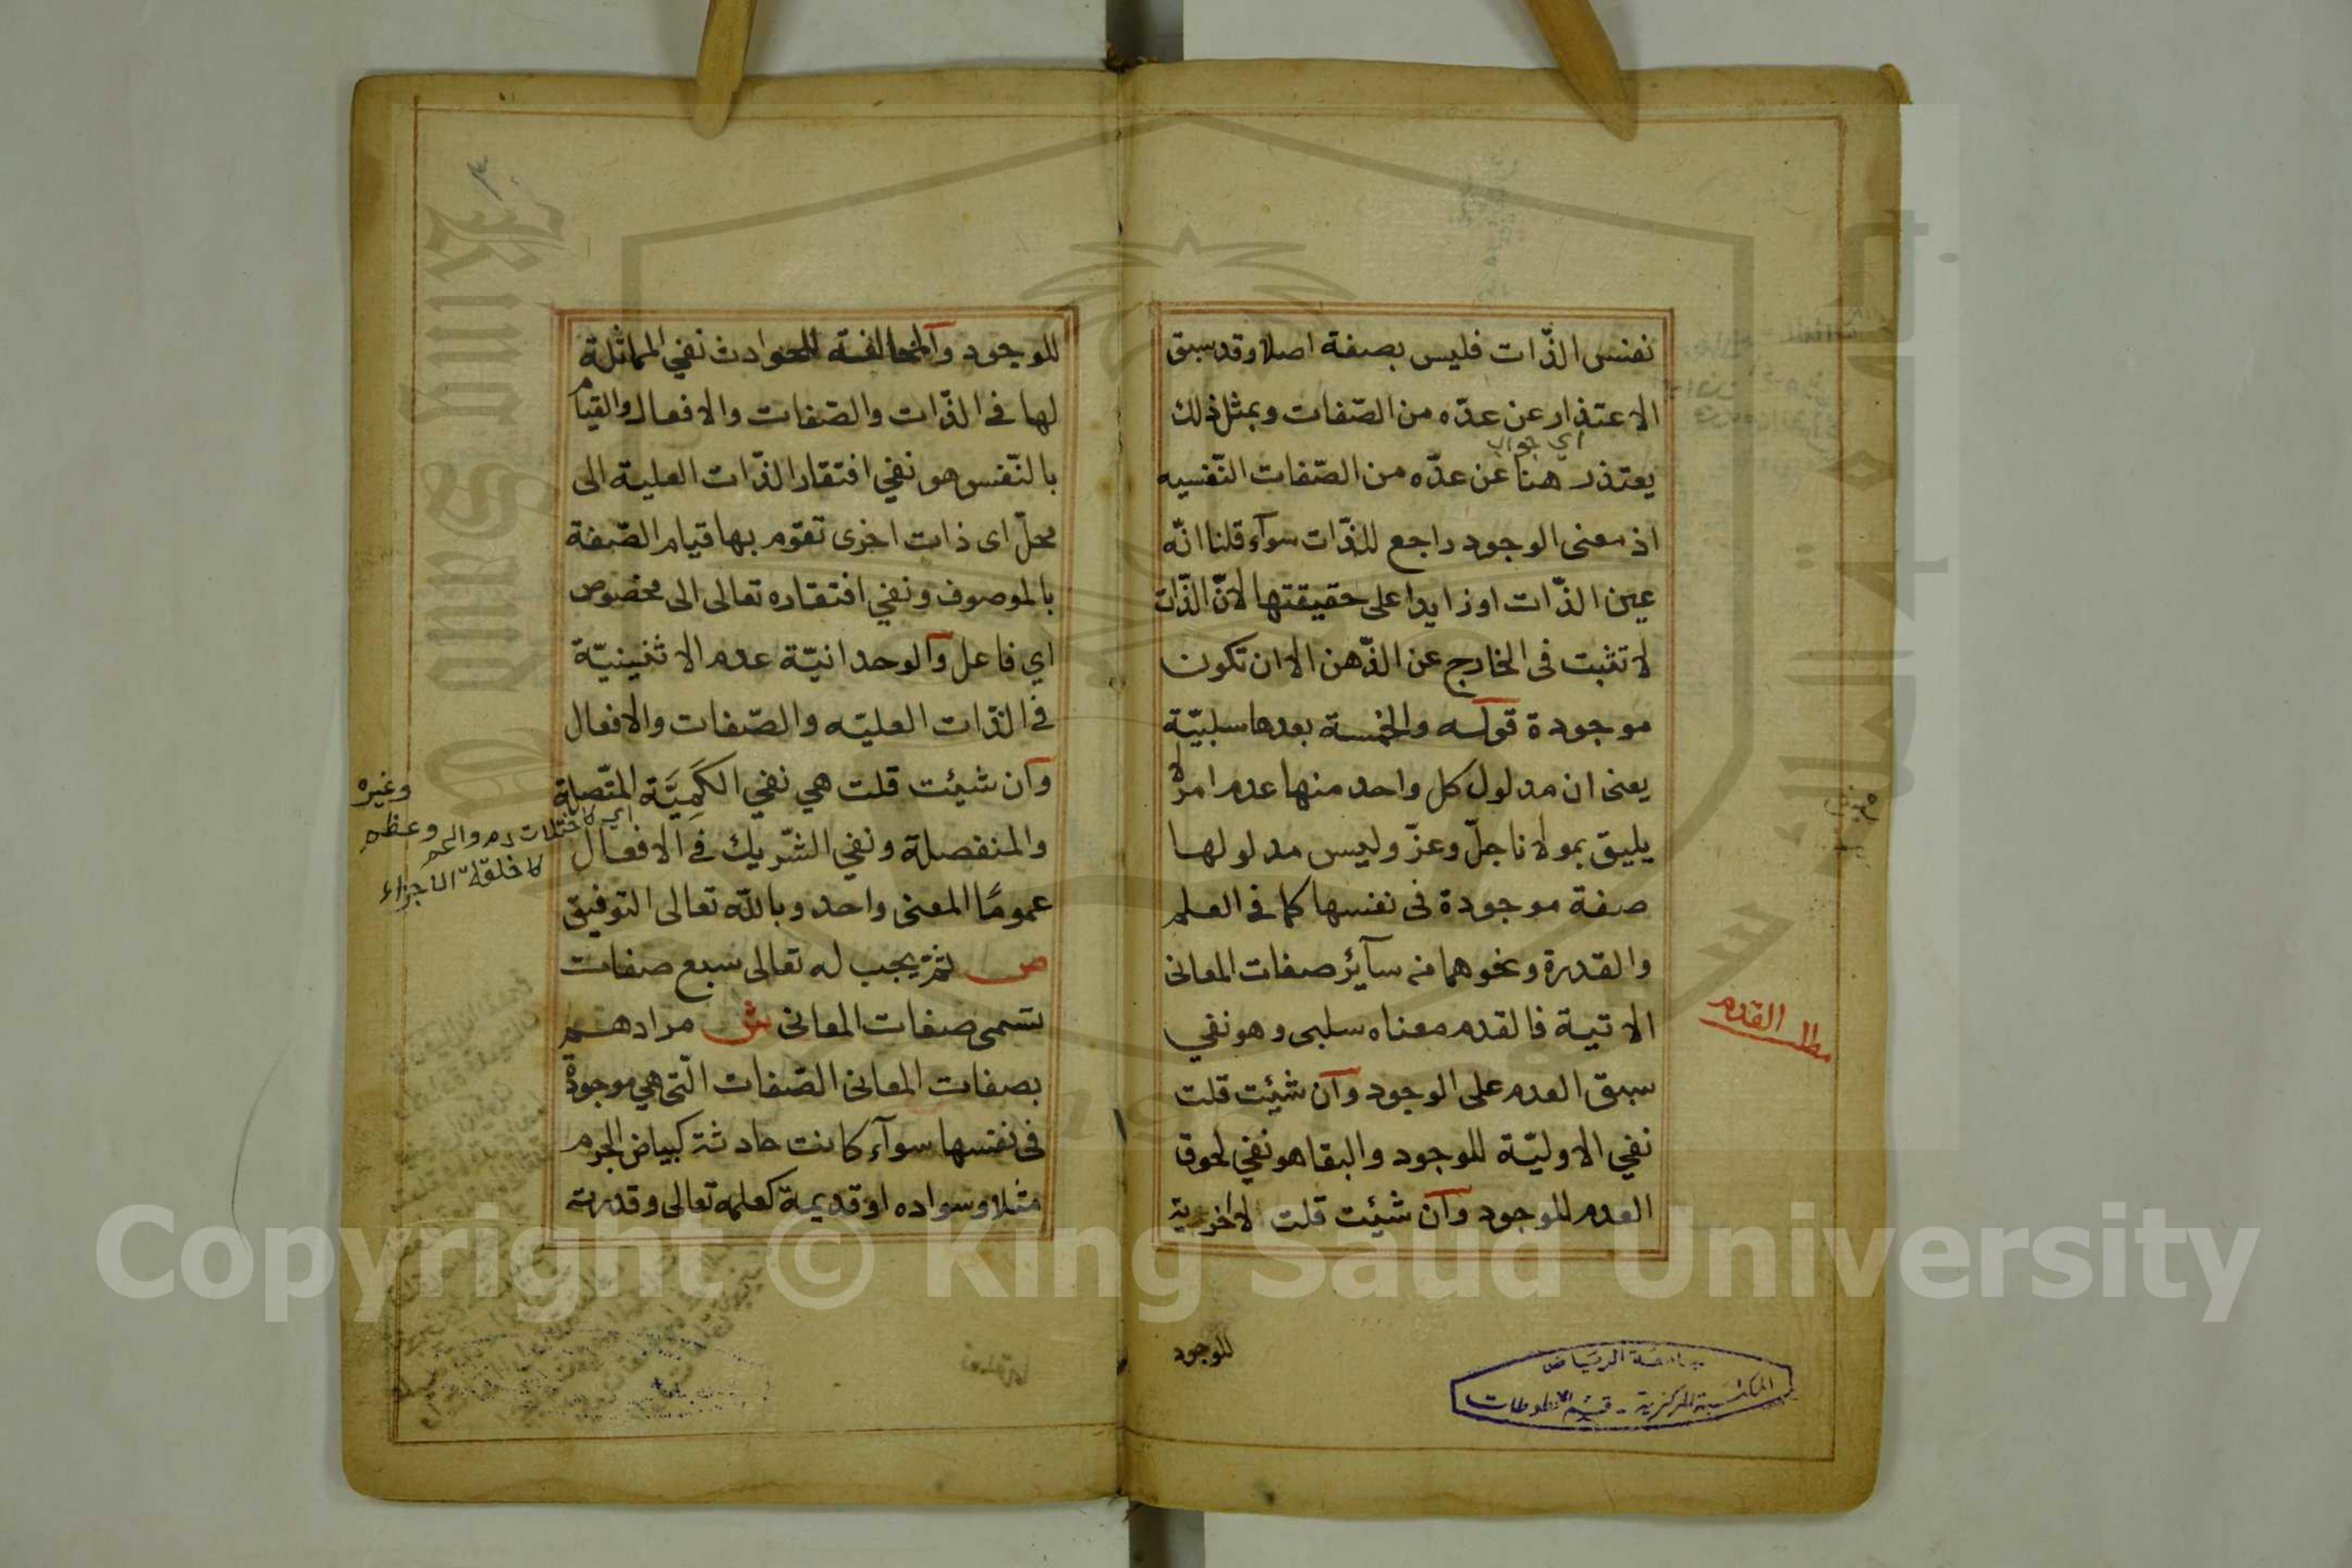 نفس الذّات فليس بصفة اصلا وقد سبق
الاعتذار عن عدّه من الصّفات وبمثل ذلك
اي جواب
يعتذر هنا عن عدّه من الصّفات النّفسيه
اذ معنى الوجود راجع للذّات سوآء قلنا انّه
عين الذّات او زايدا على حقيقتها لانّ الذّات
لا تثبت فى الخارج عن الذّهن الا ان تكون
موجودة قوله والخمسة بعدها سلبيّة
يعنى ان مدلول كل واحد منها عدم امر لا
يليق بمولانا جلّ وعزّ وليس مدلولها
صفة موجودة فى نفسها كما فى العلم
والقدرة ونحوهما من سآئر صفات المعانى
الاتية فالقدم معناه سلبى وهو نفي
سبق العدم على الوجود وآن شئت قلت
نفي الاوليّة للوجود والبقا هو نفي لحوق
العدم للوجود وآن شئت قلت لاخرية
مطلب القدم
للوجود
جامعة الرياض
المكتبة المركزية - قسم المخطوطات
٣
للوجود وآلمخالفة للحوادث نفي المماثلة
لها فى الذّات والصّفات والافعال والقيام
بالنّفس هو نفي افتقار الذّات العلية الى
محلّ اى ذات اخرى تقوم بها قيام الصّفة
بالموصوف ونفي افتقاره تعالى الى مخصّوص
اي فاعل وآلوحدانيّة عدم الاثنينيّة
فى الذّات العليّه والصّفات والافعال
وآن شئت قلت هي نفي الكَمِيَّة المتّصلة
والمنفصلة ونفي الشّريك فى الافعال
عمومًا المعنى واحد وبالله تعالى التوفيق
ص ثمّ يجب له تعالى سبع صفات
تسمى صفات المعانى ش مرادهم
بصفات المعانى الصّفات الّتى هي موجودة
فى نفسها سوآء كانت حادثة كبياض الجرم
مثلا وسواده او قديمة كعلمه تعالى وقدرته
وغيره
دم والحم وعظم
الاجزاء
Copyright © King Saud University
King Saud University